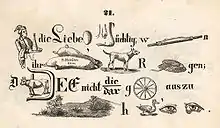 21.
die Liebe süchtig, w n
ihr R gen;
D DEE nicht die der 9 aus zu
h